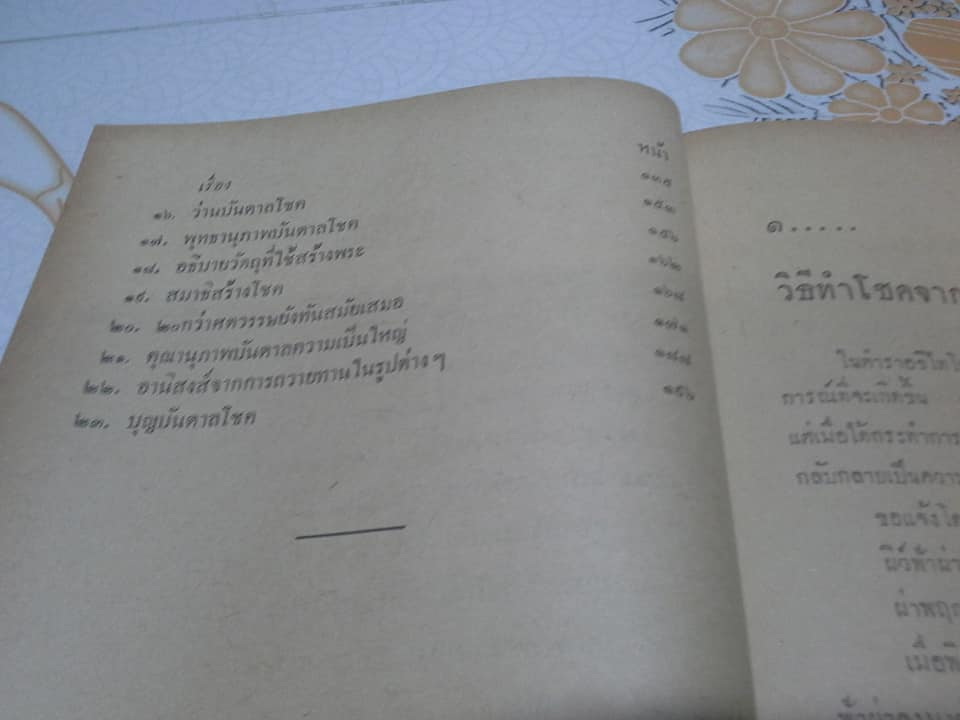 เรื่อง หน้า
๑๖. ว่านบันดาลโชค
๑๗. พุทธานุภาพบันดาลโชค ๑๕๓
๑๘. อธิบายวัตถุที่ใช้สร้างพระ ๑๕๖
๑๙. สมาธิสร้างโชค ๑๖๒
๒๐. ๒๐กว่าศตวรรษยังทันสมัยเสมอ ๑๖๘
๒๑. คุณานุภาพบันดาลความเป็นใหญ่ ๑๗๑
๒๒. อานิสงส์จากการถวายทานในรูปต่าง ๆ
๒๓. บุญบันดาลโชค
๑.....
วิธีทำโชคจาก
ในตำราอริโตโ
การณ์ที่จะเกิดขึ้น
แต่เมื่อได้กระทำการ
กลับกลายเป็นความ
ขอแจ้งโด
ผิว์ห้าผ่า
ผ่าพฤ
เมื่อ